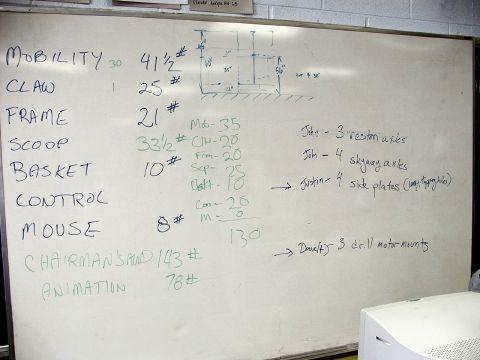 MOBILITY 30 41 1/2 #
CLAW 1 25 #
FRAME 21 #
SCOOP 33 1/2 #
BASKET 10 #
CONTROL
MOUSE 8 #
CHAIRMAN'S AND 143 #
ANIMATION 78 #
Mob- 35
Clw- 20
Frm- 20
Scp- 25
Bskt- 10
Con- 20
M- 0
130
56"
John - 3 axles
Joh - 4 skyway axles
→ Justin - 4 side plates
→ 3 drill motor mounts